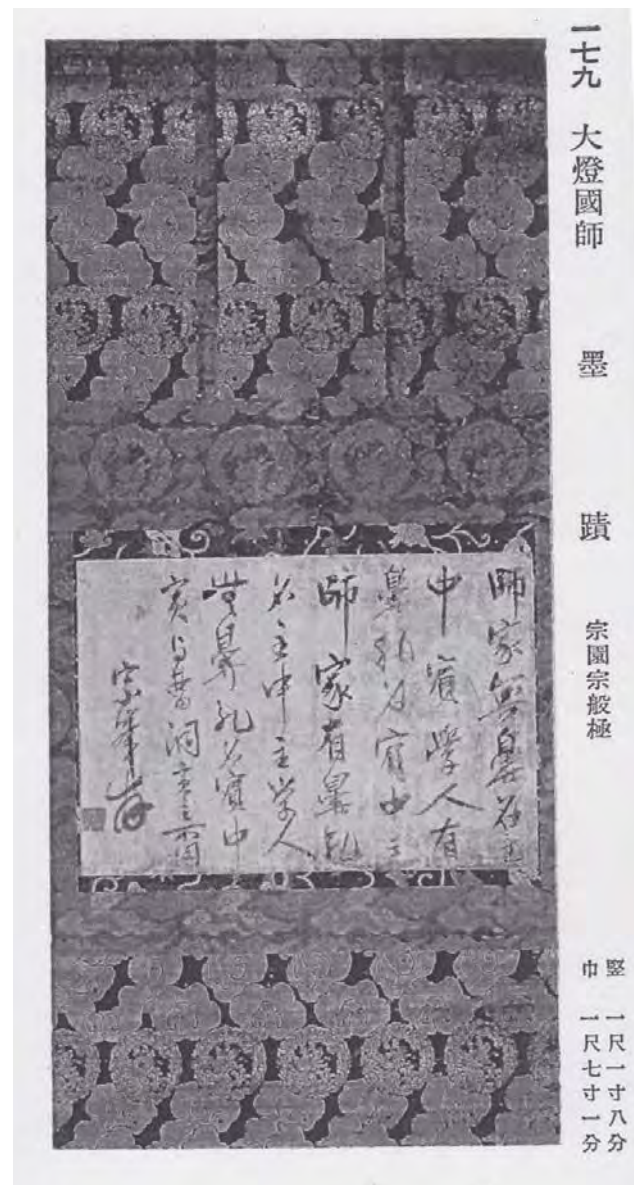 一七九 大燈國師 墨蹟 宗園宗般極
竪 一尺一寸八分
巾 一尺七寸一分
師家無鼻
中賓學人有
鼻孔名賓中主
師家有鼻孔
名主中主学人
無鼻孔名賓中
賓与曹洞
宗峯